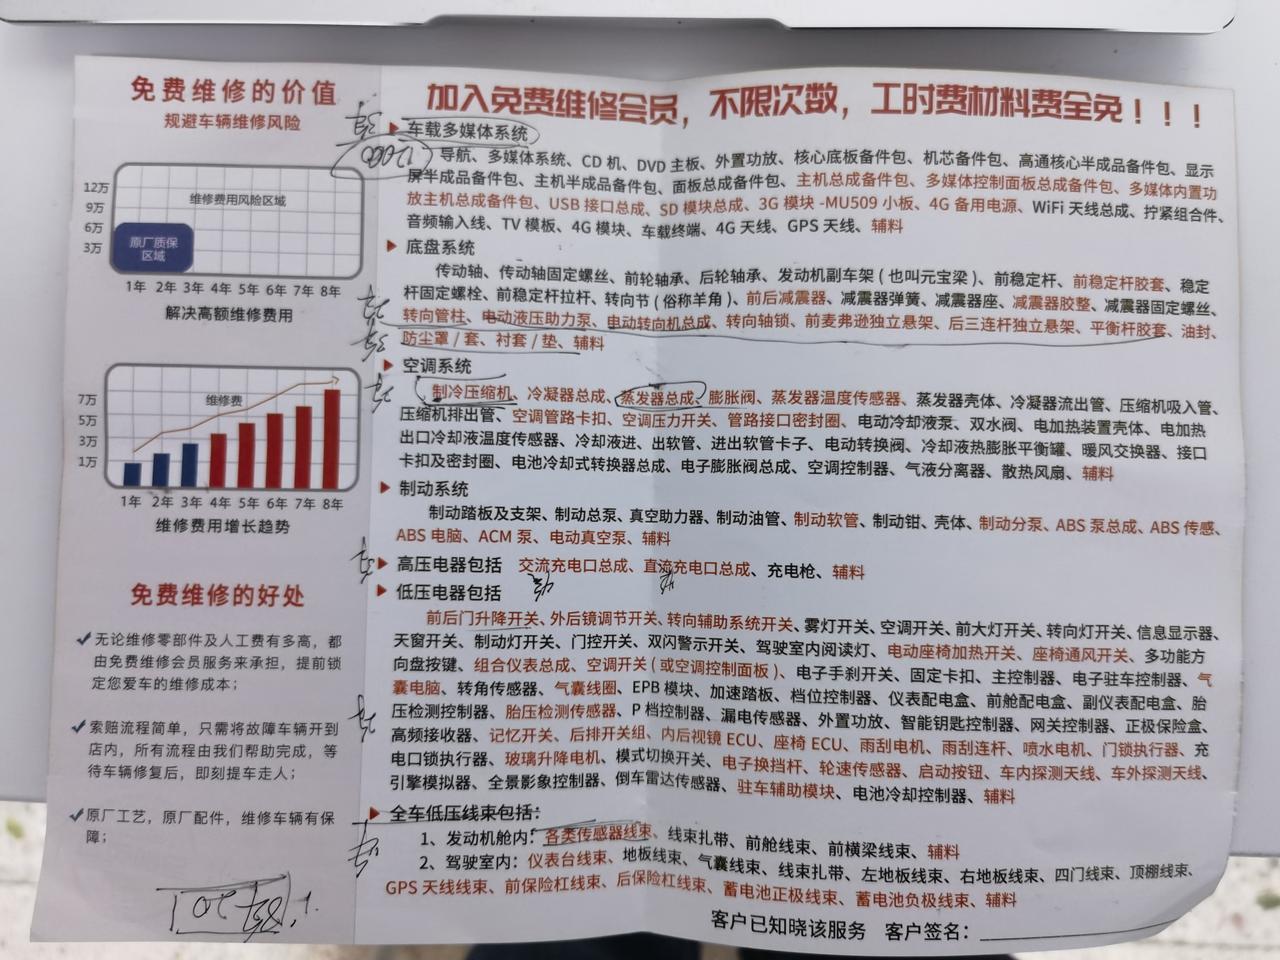 免费维修的价值
规避车辆维修风险
12万
9万
6万
3万
维修费用风险区域
原厂质保
区域
1年 2年 3年 4年 5年 6年 7年 8年
解决高额维修费用
7万
5万
3万
1万
维修费
1年 2年 3年 4年 5年 6年 7年 8年
维修费用增长趋势
免费维修的好处
无论维修零部件及人工费有多高，都
由免费维修会员服务来承担，提前锁
定您爱车的维修成本；
索赔流程简单，只需将故障车辆开到
店内，所有流程由我们帮助完成，等
待车辆修复后，即刻提车走人；
原厂工艺，原厂配件，维修车辆有保
障；
加入免费维修会员，不限次数，工时费材料费全免！！！
车载多媒体系统
导航、多媒体系统、CD 机、DVD 主板、外置功放、核心底板备件包、机芯备件包、高通核心半成品备件包、显示
屏半成品备件包、主机半成品备件包、面板总成备件包、主机总成备件包、多媒体控制面板总成备件包、多媒体内置功
放主机总成备件包、USB 接口总成、SD 模块总成、3G 模块 -MU509 小板、4G 备用电源、WiFi 天线总成、拧紧组合件、
音频输入线、TV 模板、4G 模块、车载终端、4G 天线、GPS 天线、辅料
底盘系统
传动轴、传动轴固定螺丝、前轮轴承、后轮轴承、发动机副车架（也叫元宝梁）、前稳定杆、前稳定杆胶套、稳定
杆固定螺栓、前稳定杆拉杆、转向节（俗称羊角）、前后减震器、减震器弹簧、减震器座、减震器胶整、减震器固定螺丝、
转向管柱、电动液压助力泵、电动转向机总成、转向轴锁、前麦弗逊独立悬架、后三连杆独立悬架、平衡杆胶套、油封、
防尘罩 / 套、衬套 / 垫、辅料
空调系统
制冷压缩机、冷凝器总成、蒸发器总成、膨胀阀、蒸发器温度传感器、蒸发器壳体、冷凝器流出管、压缩机吸入管、
压缩机排出管、空调管路卡扣、空调压力开关、管路接口密封圈、电动冷却液泵、双水阀、电加热装置壳体、电加热
出口冷却液温度传感器、冷却液进、出软管、进出软管卡子、电动转换阀、冷却液热膨胀平衡罐、暖风交换器、接口
卡扣及密封圈、电池冷却式转换器总成、电子膨胀阀总成、空调控制器、气液分离器、散热风扇、辅料
制动系统
制动踏板及支架、制动总泵、真空助力器、制动油管、制动软管、制动钳、壳体、制动分泵、ABS 泵总成、ABS 传感、
ABS 电脑、ACM 泵、电动真空泵、辅料
高压电器包括 交流充电口总成、直流充电口总成、充电枪、辅料
低压电器包括
前后门升降开关、外后镜调节开关、转向辅助系统开关、雾灯开关、空调开关、前大灯开关、转向灯开关、信息显示器、
天窗开关、制动灯开关、门控开关、双闪警示开关、驾驶室内阅读灯、电动座椅加热开关、座椅通风开关、多功能方
向盘按键、组合仪表总成、空调开关（或空调控制面板）、电子手刹开关、固定卡扣、主控制器、电子驻车控制器、气
囊电脑、转角传感器、气囊线圈、EPB 模块、加速踏板、档位控制器、仪表配电盒、前舱配电盒、副仪表配电盒、胎
压检测控制器、胎压检测传感器、P 档控制器、漏电传感器、外置功放、智能钥匙控制器、网关控制器、正极保险盒、
高频接收器、记忆开关、后排开关组、内后视镜 ECU、座椅 ECU、雨刮电机、雨刮连杆、喷水电机、门锁执行器、充
电口锁执行器、玻璃升降电机、模式切换开关、电子换挡杆、轮速传感器、启动按钮、车内探测天线、车外探测天线、
引擎模拟器、全景影象控制器、倒车雷达传感器、驻车辅助模块、电池冷却控制器、辅料
全车低压线束包括：
1、发动机舱内：各类传感器线束、线束扎带、前舱线束、前横梁线束、辅料
2、驾驶室内：仪表台线束、地板线束、气囊线束、线束扎带、左地板线束、右地板线束、四门线束、顶棚线束、
GPS 天线线束、前保险杠线束、后保险杠线束、蓄电池正极线束、蓄电池负极线束、辅料
客户已知晓该服务 客户签名：